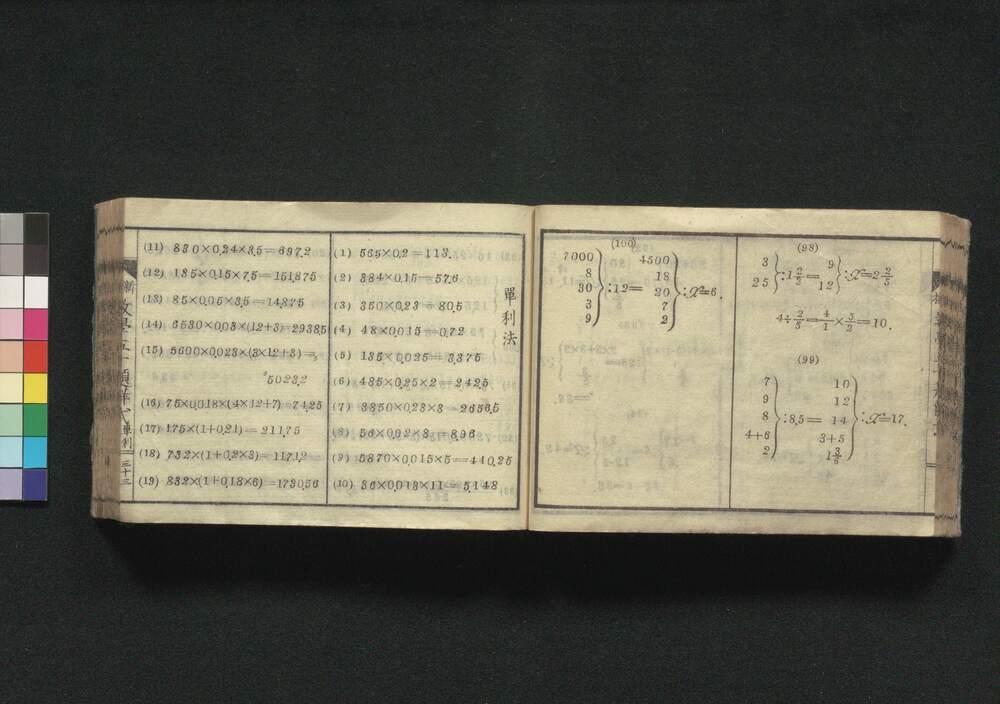 (98)
3 } 9 }
25 } :1 2/3 = 12 } :x=2 2/5
4÷2/5=4/1×5/2=10.
(99)
7 10
9 12
8 } :8.5= 14 } :x=17.
4+6 3+5
2 1 3/5
(100)
7000 4500
8 18
30 } :12= 20 } :x=6.
3 7
9 2
單利法
(1) 565×0.2=113.
(2) 384×0.15=57.6
(3) 350×0.23=80.5
(4) 48×0.015=0.72
(5) 135×0.025=3.375
(6) 485×0.25×2=242.5
(7) 3850×0.23×3=2656.5
(8) 56×0.02×8=8.96
(9) 5870×0.015×5=440.25
(10) 36×0.013×11=5.148
(11) 830×0.24×3.5=697.2
(12) 135×0.15×7.5=151.875
(13) 85×0.05×3.5=14.875
(14) 6530×0.03×(12+3)=2938.5
(15) 5600×0.023×(3×12+3)=
5023.2
(16) 75×0.018×(4×12+7)=74.25
(17) 175×(1+0.21)=211.75
(18) 732×(1+0.2×3)=1171.2
(19) 832×(1+0.18×6)=1730.56
數學五千題詳
單利
三十三